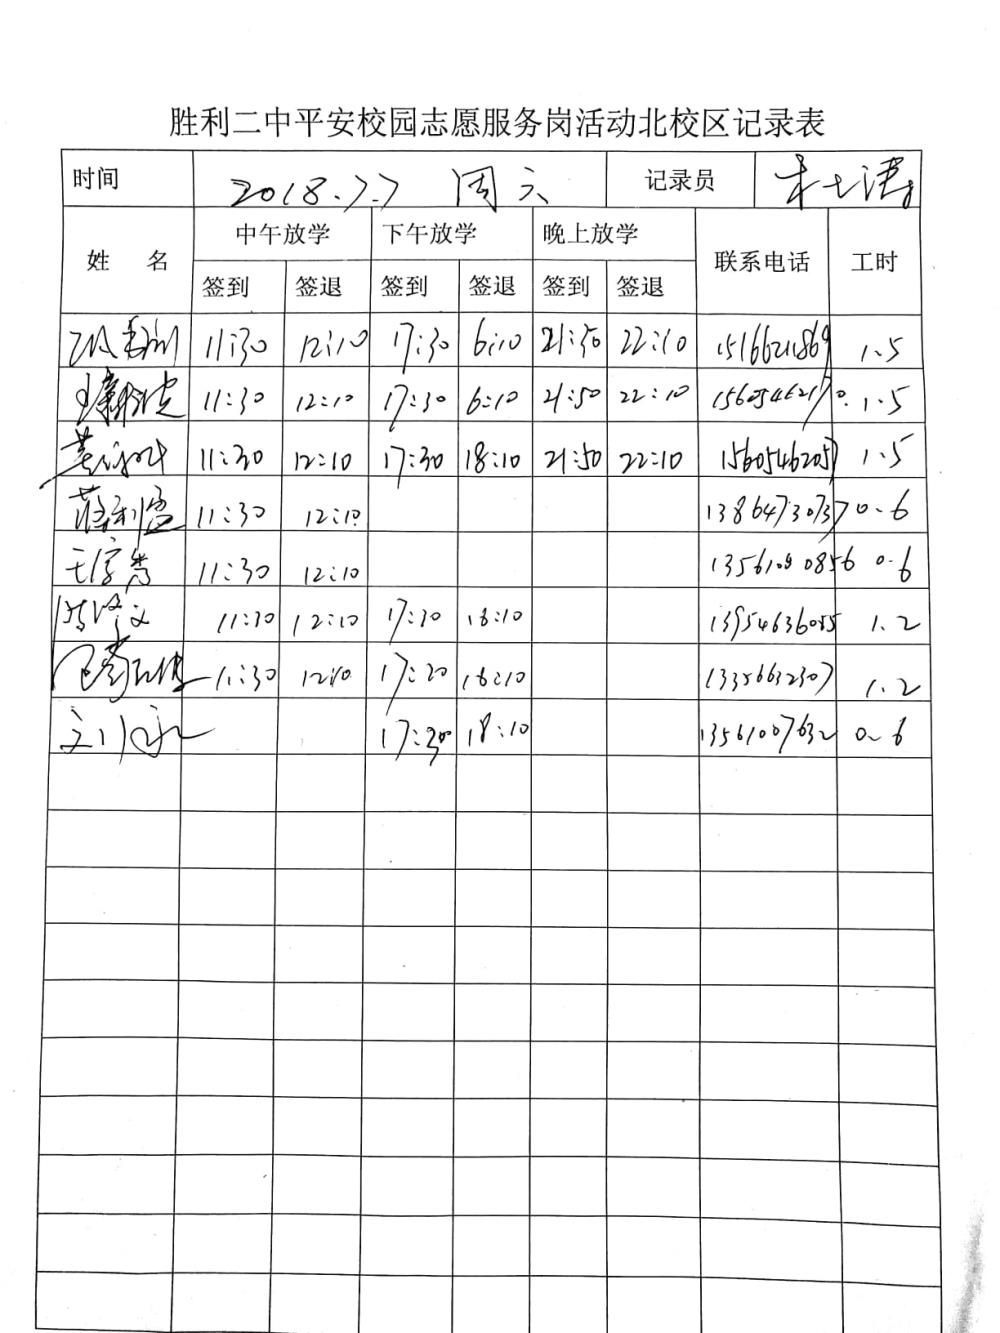 胜利二中平安校园志愿服务岗活动北校区记录表
时间 2018.7.7 周六 记录员
姓 名 中午放学 下午放学 晚上放学 联系电话 工时
签到 签退 签到 签退 签到 签退
11:30 12:10 17:30 6:10 21:50 22:10 1.5
11:30 12:10 17:30 6:10 21:50 22:10 1.5
11:30 12:10 17:30 18:10 21:50 22:10 15605462057 1.5
蒋利国 11:30 12:10 13864730737 0.6
11:30 12:10 0.6
11:30 12:10 17:30 18:10 13954636055 1.2
11:30 12:10 17:30 18:10 13356632307 1.2
17:30 18:10 13561007632 0.6